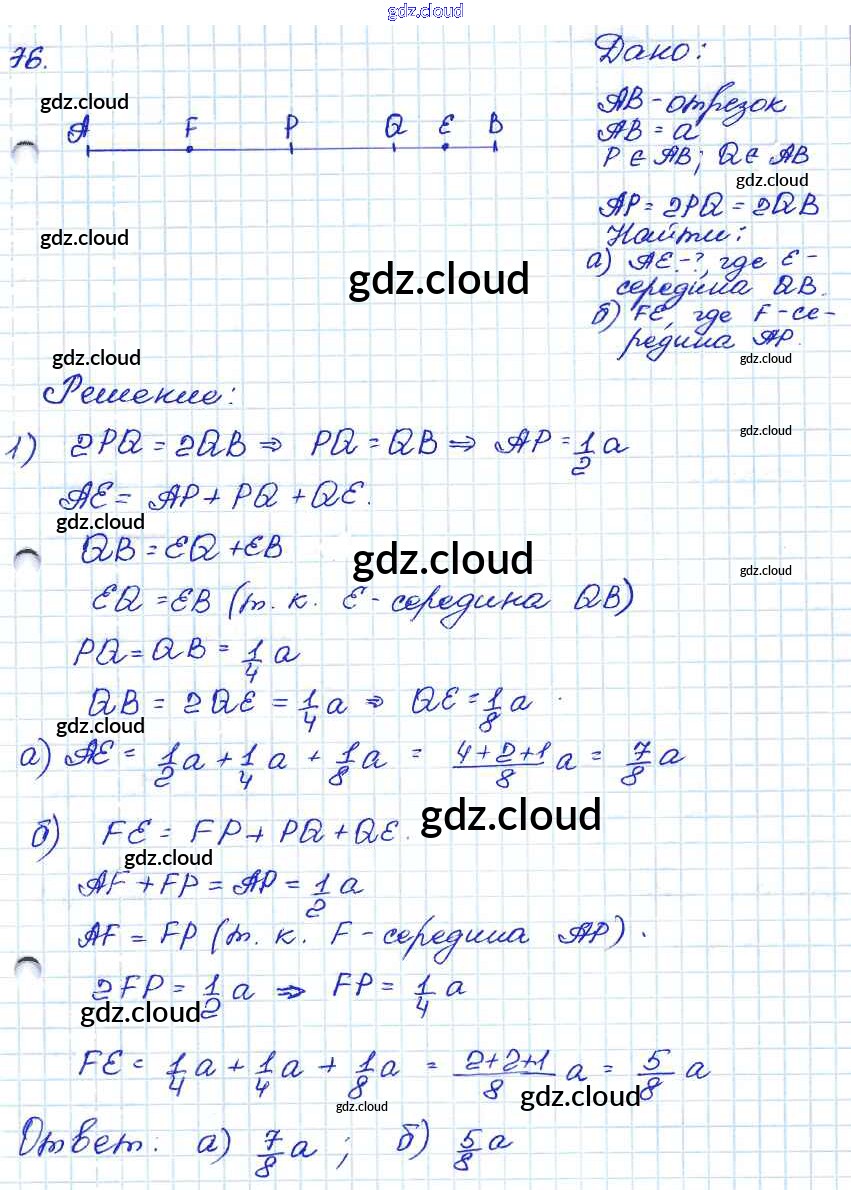 gdz.cloud
76.
Дано:
gdz.cloud
A F P Q E B
AB - отрезок
AB = a
P ∈ AB; Q ∈ AB
gdz.cloud
AP = 2PQ = 2QB
gdz.cloud
Найти:
а) AE - ?, где E -
середина QB.
gdz.cloud
б) FE, где F - се-
редина AP.
gdz.cloud
gdz.cloud
Решение:
gdz.cloud
1) 2PQ = 2QB ⇒ PQ = QB ⇒ AP = 1/2 a
AE = AP + PQ + QE.
gdz.cloud
QB = EQ + EB
gdz.cloud
gdz.cloud
EQ = EB (т. к. E - середина QB)
PQ = QB = 1/4 a
QB = 2QE = 1/4 a ⇒ QE = 1/8 a
gdz.cloud
а) AE = 1/2 a + 1/4 a + 1/8 a = 4+2+1/8 a = 7/8 a
gdz.cloud
б) FE = FP + PQ + QE.
gdz.cloud
AF + FP = AP = 1/2 a
AF = FP (т. к. F - середина AP).
2FP = 1/2 a ⇒ FP = 1/4 a
gdz.cloud
FE = 1/4 a + 1/4 a + 1/8 a = 2+2+1/8 a = 5/8 a
gdz.cloud
gdz.cloud
Ответ: а) 7/8 a; б) 5/8 a